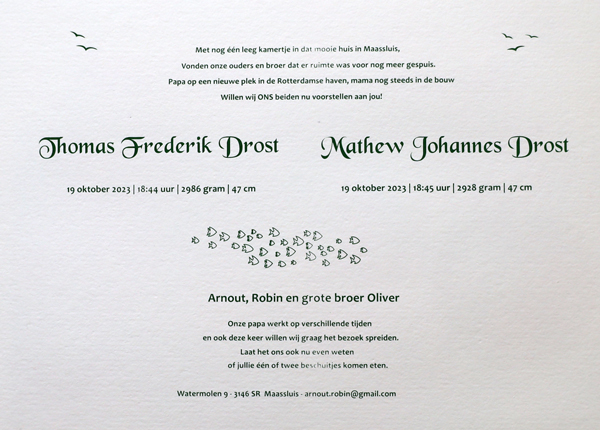 Met nog één leeg kamertje in dat mooie huis in Maassluis,
Vonden onze ouders en broer dat er ruimte was voor nog meer gespuis.
Papa op een nieuwe plek in de Rotterdamse haven, mama nog steeds in de bouw
Willen wij ONS beiden nu voorstellen aan jou!
Thomas Frederik Drost
19 oktober 2023 | 18:44 uur | 2986 gram | 47 cm
Mathew Johannes Drost
19 oktober 2023 | 18:45 uur | 2928 gram | 47 cm
Arnout, Robin en grote broer Oliver
Onze papa werkt op verschillende tijden
en ook deze keer willen wij graag het bezoek spreiden.
Laat het ons ook nu even weten
of jullie één of twee beschuitjes komen eten.
Watermolen 9 · 3146 SR Maassluis · arnout.robin@gmail.com